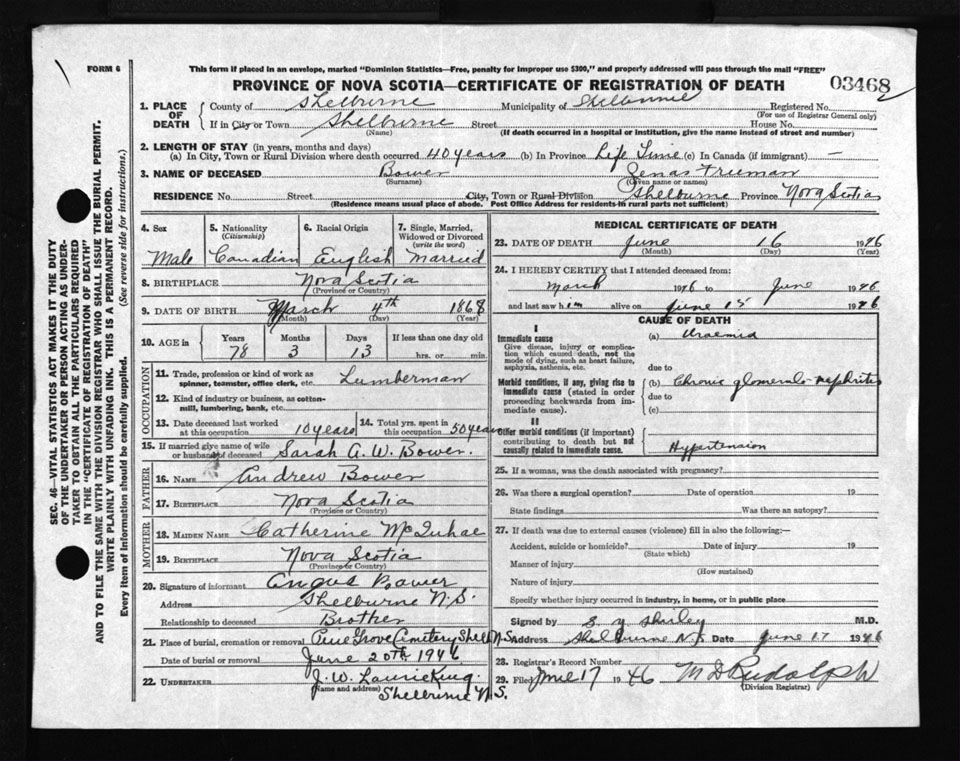 FORM 6
This form if placed in an envelope, marked "Dominion Statistics—Free, penalty for improper use $300," and properly addressed will pass through the mail "FREE"
PROVINCE OF NOVA SCOTIA—CERTIFICATE OF REGISTRATION OF DEATH
03468
1. PLACE OF DEATH County of Shelburne Municipality of Shelburne Registered No.
(For use of Registrar General only)
If in City or Town Shelburne Street House No.
(Name) (If death occurred in a hospital or institution, give the name instead of street and number)
2. LENGTH OF STAY (in years, months and days)
(a) In City, Town or Rural Division where death occurred 40 years (b) In Province Life Time (c) In Canada (if immigrant) —
3. NAME OF DECEASED Bower Zenas Truman
(Surname) (Given name or names)
RESIDENCE No. Street City, Town or Rural Division Shelburne Province Nova Scotia
(Residence means usual place of abode. Post Office Address for residents in rural parts not sufficient)
SEC. 46—VITAL STATISTICS ACT MAKES IT THE DUTY
OF THE UNDERTAKER OR PERSON ACTING AS UNDER-
TAKER TO OBTAIN ALL THE PARTICULARS REQUIRED
IN THE "CERTIFICATE OF REGISTRATION OF DEATH"
AND TO FILE THE SAME WITH THE DIVISION REGISTRAR WHO SHALL ISSUE THE BURIAL PERMIT.
WRITE PLAINLY WITH UNFADING INK. THIS IS A PERMANENT RECORD.
Every item of information should be carefully supplied. (See reverse side for instructions.)
4. Sex
Male
5. Nationality
(Citizenship)
Canadian
6. Racial Origin
English
7. Single, Married,
Widowed or Divorced
(write the word)
Married
8. BIRTHPLACE Nova Scotia
(Province or Country)
9. DATE OF BIRTH March 4th 1868
(Month) (Day) (Year)
10. AGE in Years Months Days If less than one day old
78 3 13 hrs. or min.
OCCUPATION
11. Trade, profession or kind of work as
spinner, teamster, office clerk, etc. Lumberman
12. Kind of industry or business, as cotton-
mill, lumbering, bank, etc.
13. Date deceased last worked
at this occupation 10 years
14. Total yrs. spent in
this occupation 50 years
15. If married give name of wife
or husband of deceased Sarah A. W. Bower.
FATHER
16. NAME Andrew Bower
17. BIRTHPLACE Nova Scotia
(Province or Country)
MOTHER
18. MAIDEN NAME Catherine
19. BIRTHPLACE Nova Scotia
(Province or Country)
20. Signature of informant Angus Bower
Address Shelburne N.S.
Relationship to deceased Brother
21. Place of burial, cremation or removal Pine Grove Cemetery Shel N.S.
Date of burial or removal June 20th 1946
22. UNDERTAKER J. W.
(Name and address) Shelburne N.S.
MEDICAL CERTIFICATE OF DEATH
23. DATE OF DEATH June 16 1946
(Month) (Day) (Year)
24. I HEREBY CERTIFY that I attended deceased from:
March 1946 to June 1946
and last saw him alive on June 15 1946
CAUSE OF DEATH
I
Immediate cause
Give disease, injury or complica-
tion which caused death, not the
mode of dying, such as heart failure,
asphyxia, asthenia, etc.
(a) Uraemia
due to
Morbid conditions, if any, giving rise to
immediate cause (stated in order
proceeding backwards from im-
mediate cause).
(b) Chronic glomerulo-nephritis
due to
(c)
II
Other morbid conditions (if important)
contributing to death but not
causally related to immediate cause.
Hypertension
25. If a woman, was the death associated with pregnancy?
26. Was there a surgical operation? Date of operation 19
State findings Was there an autopsy?
27. If death was due to external causes (violence) fill in also the following:—
Accident, suicide or homicide? Date of injury 19
(State which)
Manner of injury
(How sustained)
Nature of injury
Specify whether injury occurred in industry, in home, or in public place
Signed by M.D.
Address Shelburne N.S. Date June 17 1946
28. Registrar's Record Number
29. Filed June 17 1946 M D Rudolph
(Division Registrar)